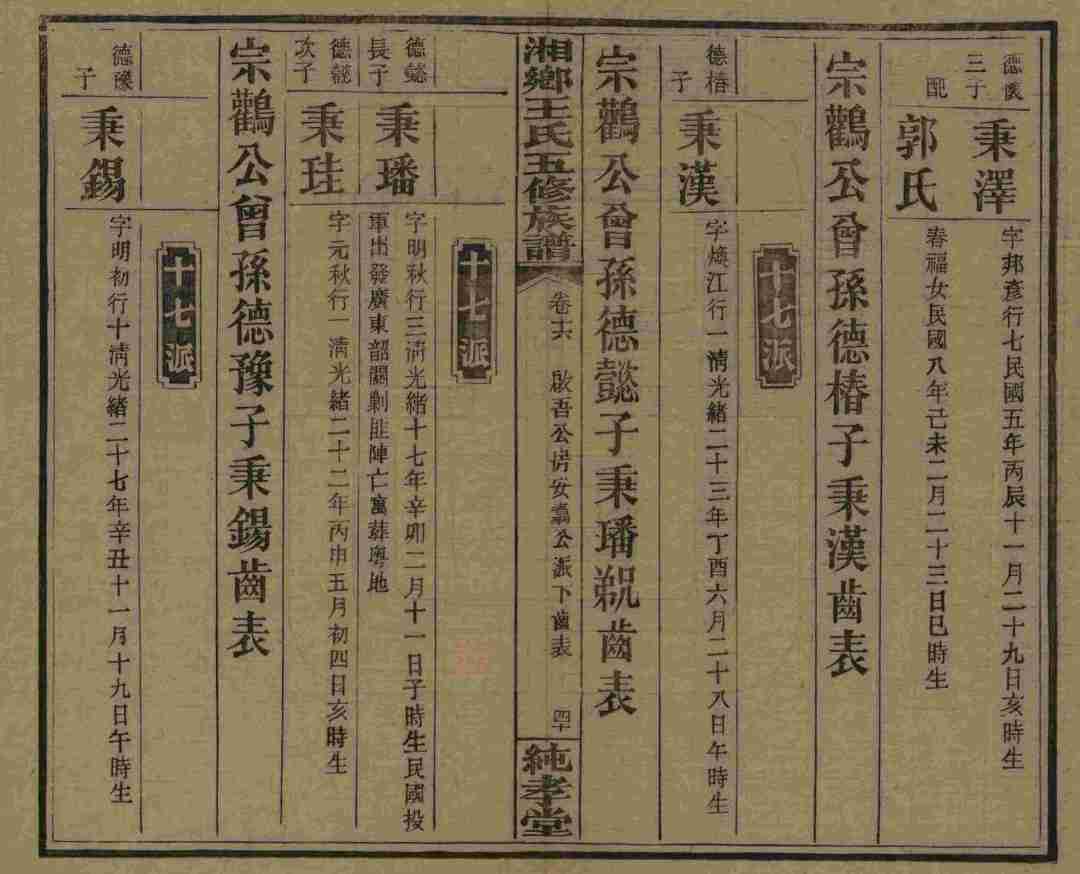 三子
秉澤
字邦彥行七民國五年丙辰十一月二十九日亥時生
配
郭氏
春福女民國八年己未二月二十三日巳時生
宗鸛公曾孫德椿子秉漢齒表
十七派
德椿子
秉漢
字煥江行一清光緒二十三年丁酉六月二十八日午時生
宗鸛公曾孫德懿子秉璠
齒表
湘鄉王氏五修族譜
卷十六
啟吾公房安
公派下齒表
四十
純孝堂
十七派
德懿長子
秉璠
字明秋行三清光緒十七年辛卯二月十一日子時生民國投
軍出發廣東韶關剿匪陣亡寓葬粵地
德懿次子
秉珪
字元秋行一清光緒二十二年丙申五月初四日亥時生
宗鸛公曾孫德豫子秉錫齒表
十七派
德豫子
秉錫
字明初行十清光緒二十七年辛丑十一月十九日午時生